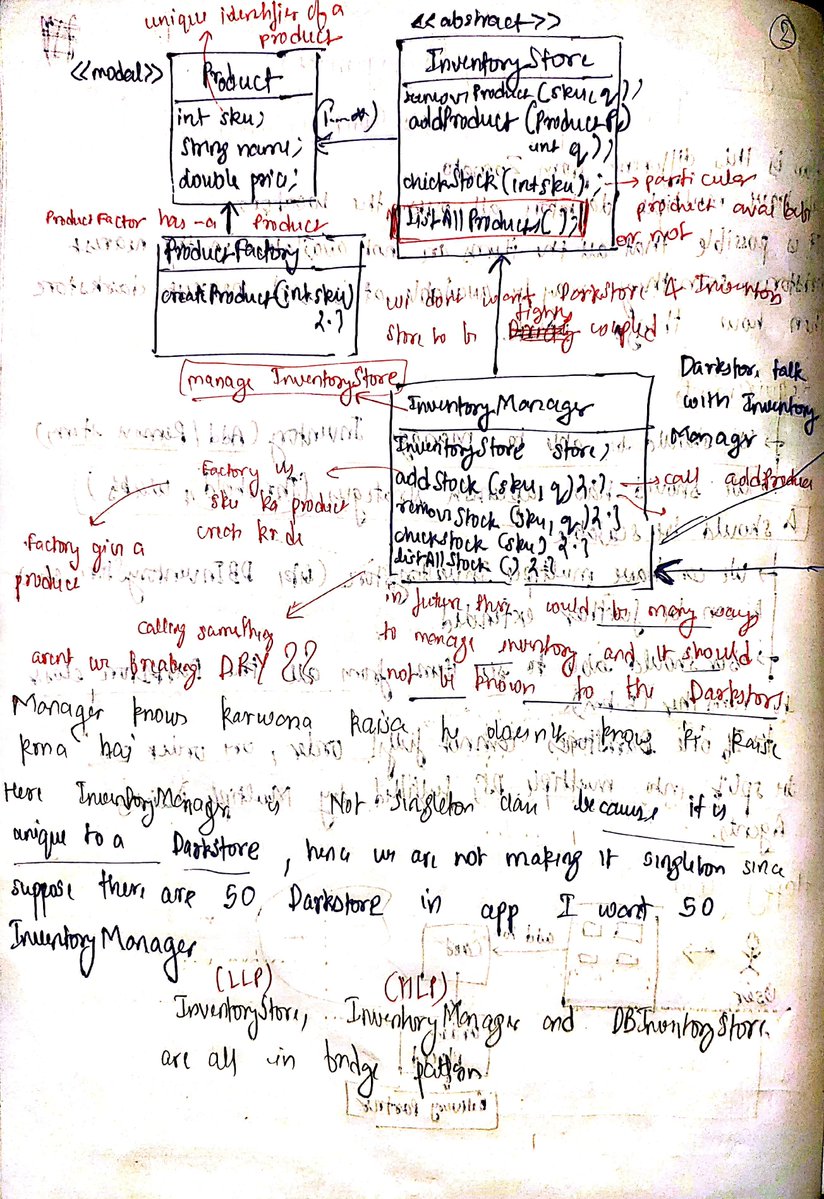 unique identifier of a
product
<<abstract>>
2
<<model>>
Product
InventoryStore
int sku;
string name;
double price;
removeProduct (sku, q);
addProduct (Product P,
int q);
checkStock (int sku);
particular
product
or not
listAllProducts();
ProductFactor has-a Product
ProductFactory
createProduct(int sku)
we dont want Darkstore & Inventory
store to be tightly coupled
manage InventoryStore
InventoryManager
Darkstore talk
with Inventory
Manager
InventoryStore store;
addStock (sku, q) {.}
call addProduct
removeStock (sku, q) {.}
checkstock (sku) {.}
listAllStock () {.}
Factory
sku ka product
Factory give a
product
calling something
arent we breaking DRY ??
in future there would be many ways
to manage inventory, and it should
not be known to the Darkstore
Manager knows karwana kaisa he doesn't know ki kaise
krna hai
Here InventoryManager is Not singleton class because it is
unique to a Darkstore, hence we are not making it singleton since
suppose there are 50 Darkstore in app I want 50
InventoryManager
(LLP) (HLP)
InventoryStore, InventoryManager and DBInventoryStore
are all in bridge pattern